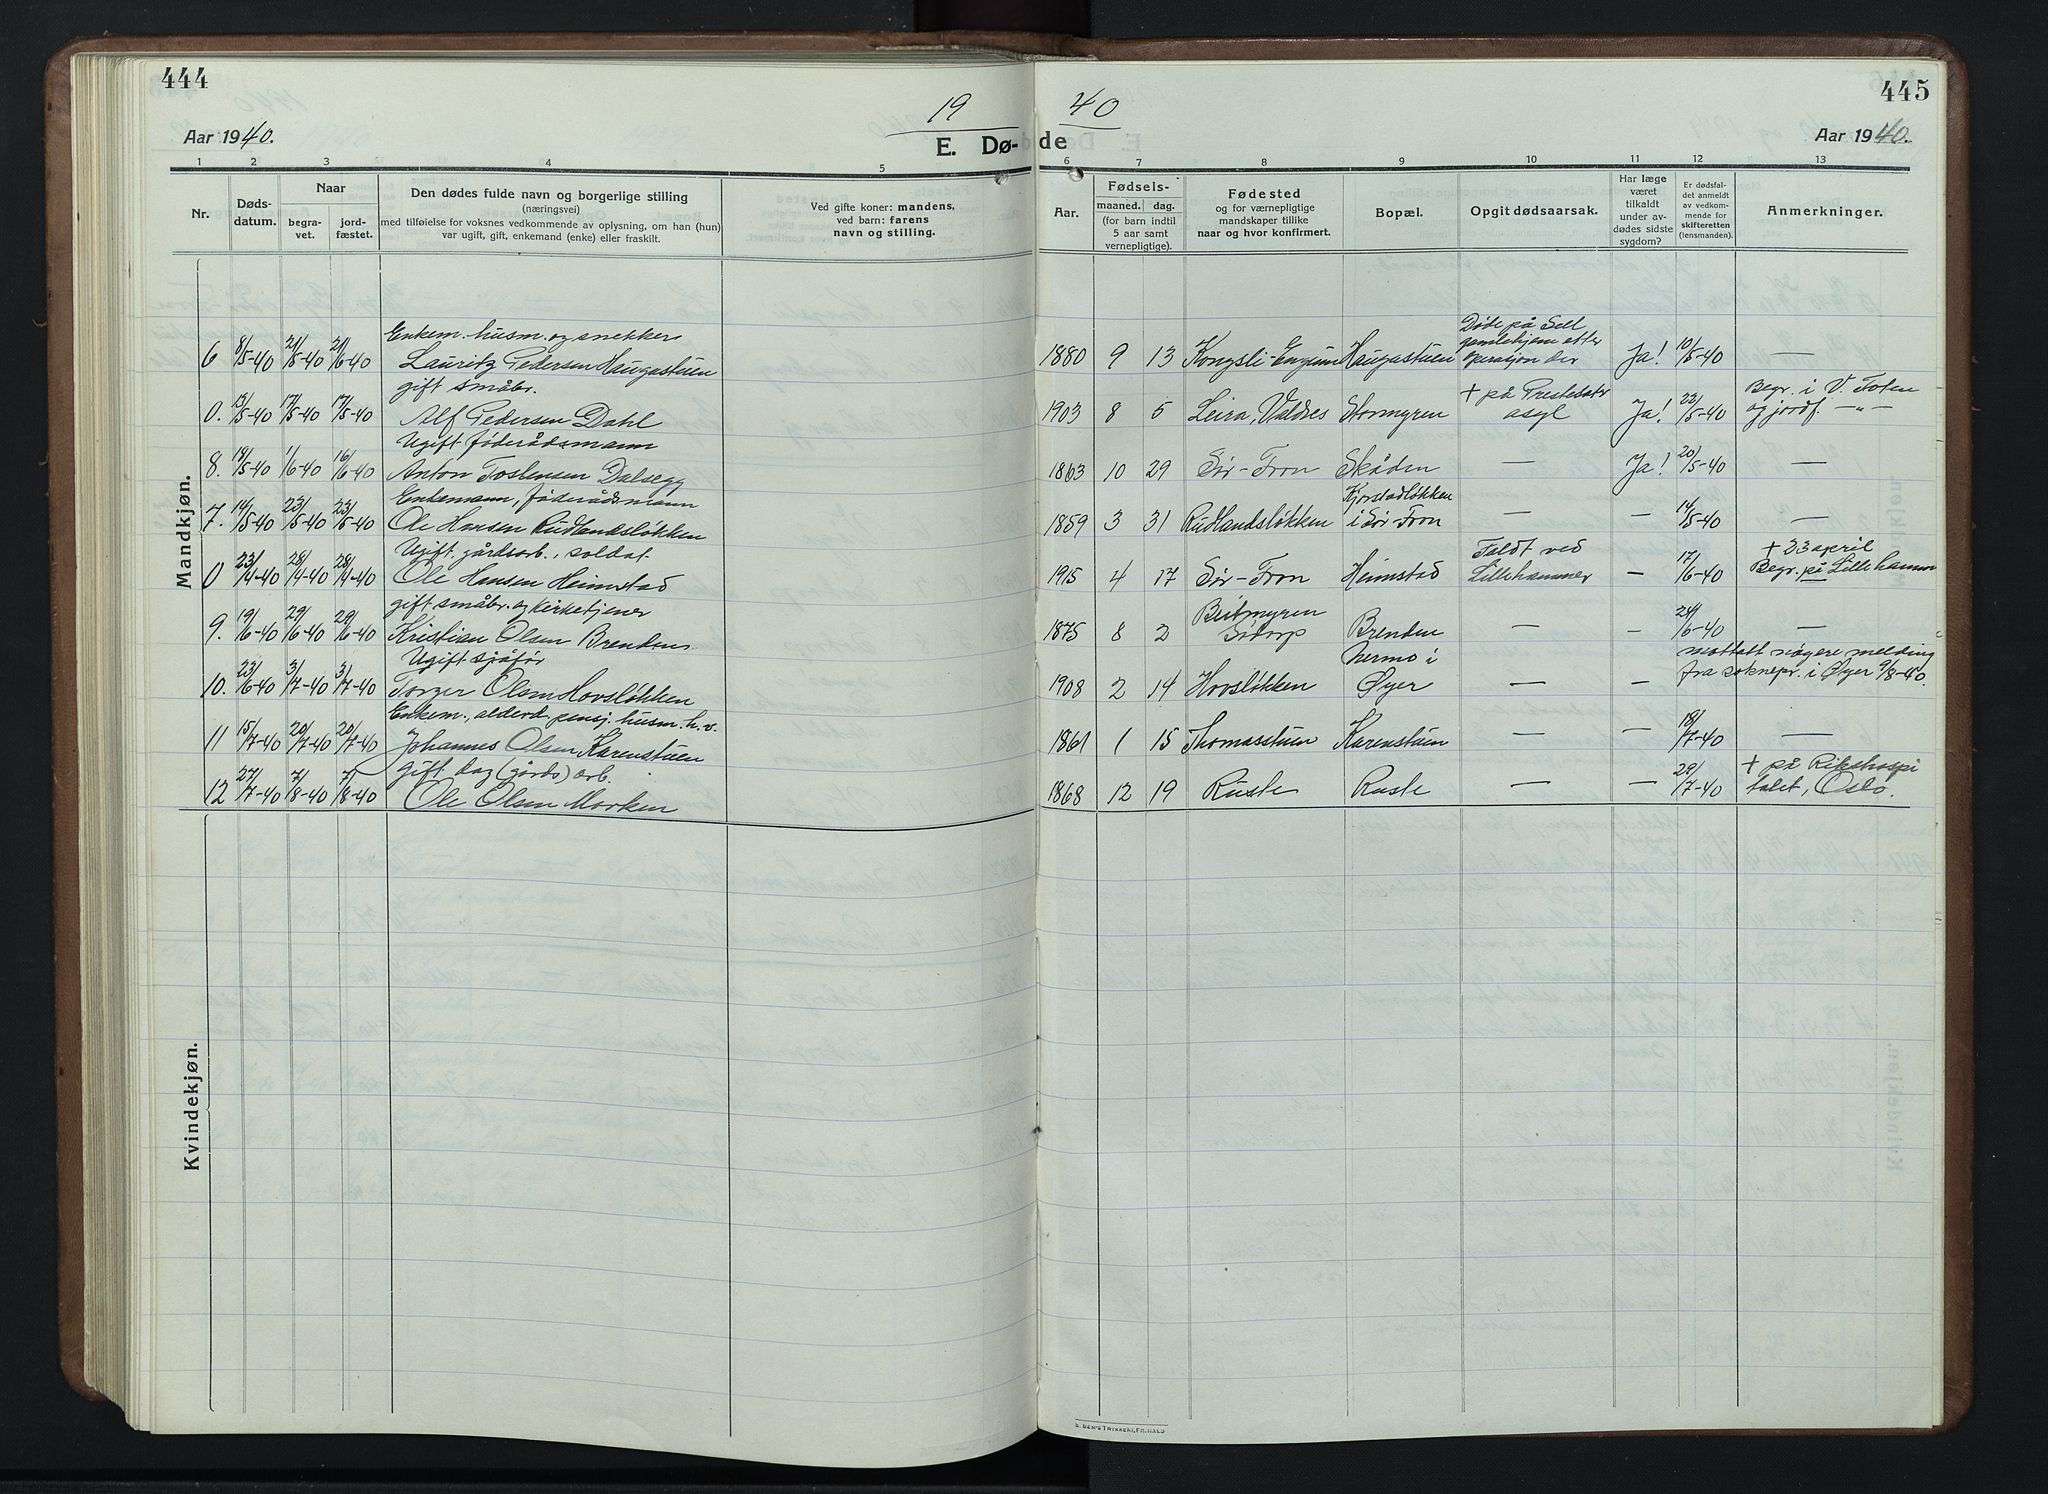 444
445
19 40
Aar 1940.
E. Døde
Aar 1940.
1 2 3 4 5 6 7 8 9 10 11 12 13
Nr.
Døds-
datum.
Naar
begra-
vet.
jord-
fæstet.
Den dødes fulde navn og borgerlige stilling
(næringsvei)
med tilføielse for voksnes vedkommende av oplysning, om han (hun)
var ugift, gift, enkemand (enke) eller fraskilt.
Ved gifte koner: mandens,
ved barn: farens
navn og stilling.
Aar.
Fødsels-
maaned. dag.
(for barn indtil
5 aar samt
vernepligtige).
Fødested
og for værnepligtige
mandskaper tillike
naar og hvor konfirmert.
Bopæl.
Opgit dødsaarsak.
Har læge
været
tilkaldt
under av-
dødes sidste
sygdom?
Er dødsfal-
det anmeldt
av vedkom-
mende for
skifteretten
(lensmanden).
Anmerkninger.
Mandkjøn.
Enkem. husm. og snekker
6 8/5-40 21/5-40 21/6-40 Lauritz Pedersen Haugastuen 1880 9 13 Kongsli Haugastuen Døde på Sell gamlehjem etter operasjon der Ja! 10/5-40 —
gift småbr.
0. 13/5-40 17/5-40 17/5-40 Alf Pedersen Dahl 1903 8 5 Leira, Valdres Stormyren + på Prestesæter asyl Ja! 22/5-40 Begr. i V. Toten og jordf. —"—
Ugift føderådsmann
8. 18/5-40 1/6-40 16/6-40 Anton Tostensen Dalsegg 1863 10 29 Sør-Fron Skåden — Ja! 20/5-40 —
Enkemann, føderådsmann
7. 14/5-40 23/5-40 23/5-40 Ole Hansen Rudlandsløkken 1859 3 31 Rudlandsløkken Kjorstadløkken i Sør-Fron 14/5-40 —
Ugift, gårdsarb., soldat
0 23/4-40 28/4-40 28/4-40 Ole Hansen Heimstad 1915 4 17 Sør-Fron Heimstad Faldt ved Lillehammer — 17/6-40 + 23 april Begr. på Lillehamm
gift småbr. og kirketjener
9. 19/6-40 29/6-40 29/6-40 Kristian Olsen Brenden 1875 8 2 Beitmyren Sødorp Brenden — — 24/6-40 —
Ugift sjåfør
10. 23/6-40 3/7-40 3/7-40 Torger Olsen Hovsløkken 1908 2 14 Hovsløkken Hermo i Øyer — — mottatt nøgere melding fra soknepr. i Øyer 9/8-40.
Enkem., alderd. pensj. husm. h. v.
11 15/7-40 20/7-40 20/7-40 Johannes Olsen Karenstuen 1861 1 15 Thomasstuen Karenstuen — — 18/7-40 —
gift dag (gårds) arb.
12 27/7-40 7/8-40 7/8-40 Ole Olsen Morken 1868 12 19 Ruste Ruste — — 29/7-40 + på Rikshospitalet, Oslo.
Kvindekjøn.